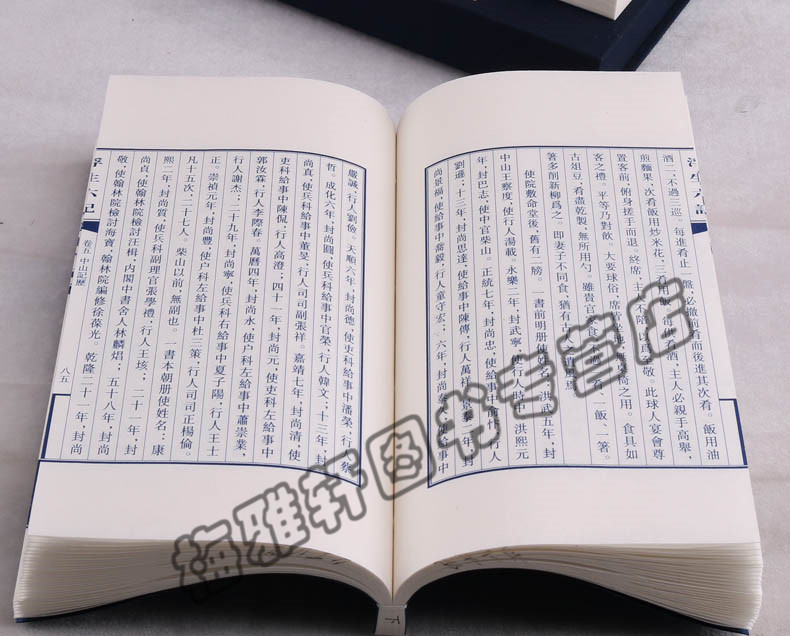 酒一、不過三巡。每進肴止一盤、必撤前肴而後進其次肴。飯用油
煎麵果、次肴飯用炒米花、三肴用飯。每供肴酒、主人必親手高舉、
置客前、俯身搓手而退。終席、主人不陪、以爲至敬。此球人宴會尊
客之禮、平等乃對飲。大要球俗、席皆坐地、無椅之用。食具如
古俎豆、肴盡乾製、無所用勺。雖貴官家食不過一肴、一飯、一箸。
著多削新柳爲之。即妻子不同食、猶有古人之遺風焉。
使院敷命堂後、舊有二牓。一書前明册使姓名：洪武五年、封
中山王察度、使行人湯載。永樂二年、封武寧、使行人時中。洪熙元
年、封巴志、使中官柴山。正統七年、封尚忠、使給事中俞忭、行人
劉遜；十三年、封尚思達、使給事中陳傳、行人萬祥。景泰二年、封
尚景福、使給事中喬毅、行人童守宏；六年、封尚泰久、使給事中
嚴誠、行人劉儉。天順六年、封尚德、使吏科給事中潘榮、行人蔡
哲。成化六年、封尚圓、使兵科給事中官榮、行人韓文；十三年、封
尚真、使兵科給事中董旻、行人司司副張祥。嘉靖七年、封尚清、使
吏科給事中陳侃、行人高澄；四十一年、封尚元、使吏科左給事中
郭汝霖、行人李際春。萬曆四年、封尚永、使户科左給事中蕭崇業、
行人謝杰；二十九年、封尚寧、使兵科右給事中夏子陽、行人王士
正。崇禎元年、封尚豐、使户科左給事中杜三策、行人司司正楊倫。
凡十五次、二十七人。柴山以前、無副也。一書本朝册使姓名：康
熙二年、封尚質、使兵科副理官張學禮、行人王垓；二十一年、封
尚貞、使翰林院檢討汪楫、内閣中書舍人林麟焻；五十八年、封尚
敬、使翰林院檢討海寶、翰林院編修徐葆光。乾隆二十一年、封尚
浮生六記
卷五 中山記歷
八五
浮生六記
下
梅雅轩图书专营店